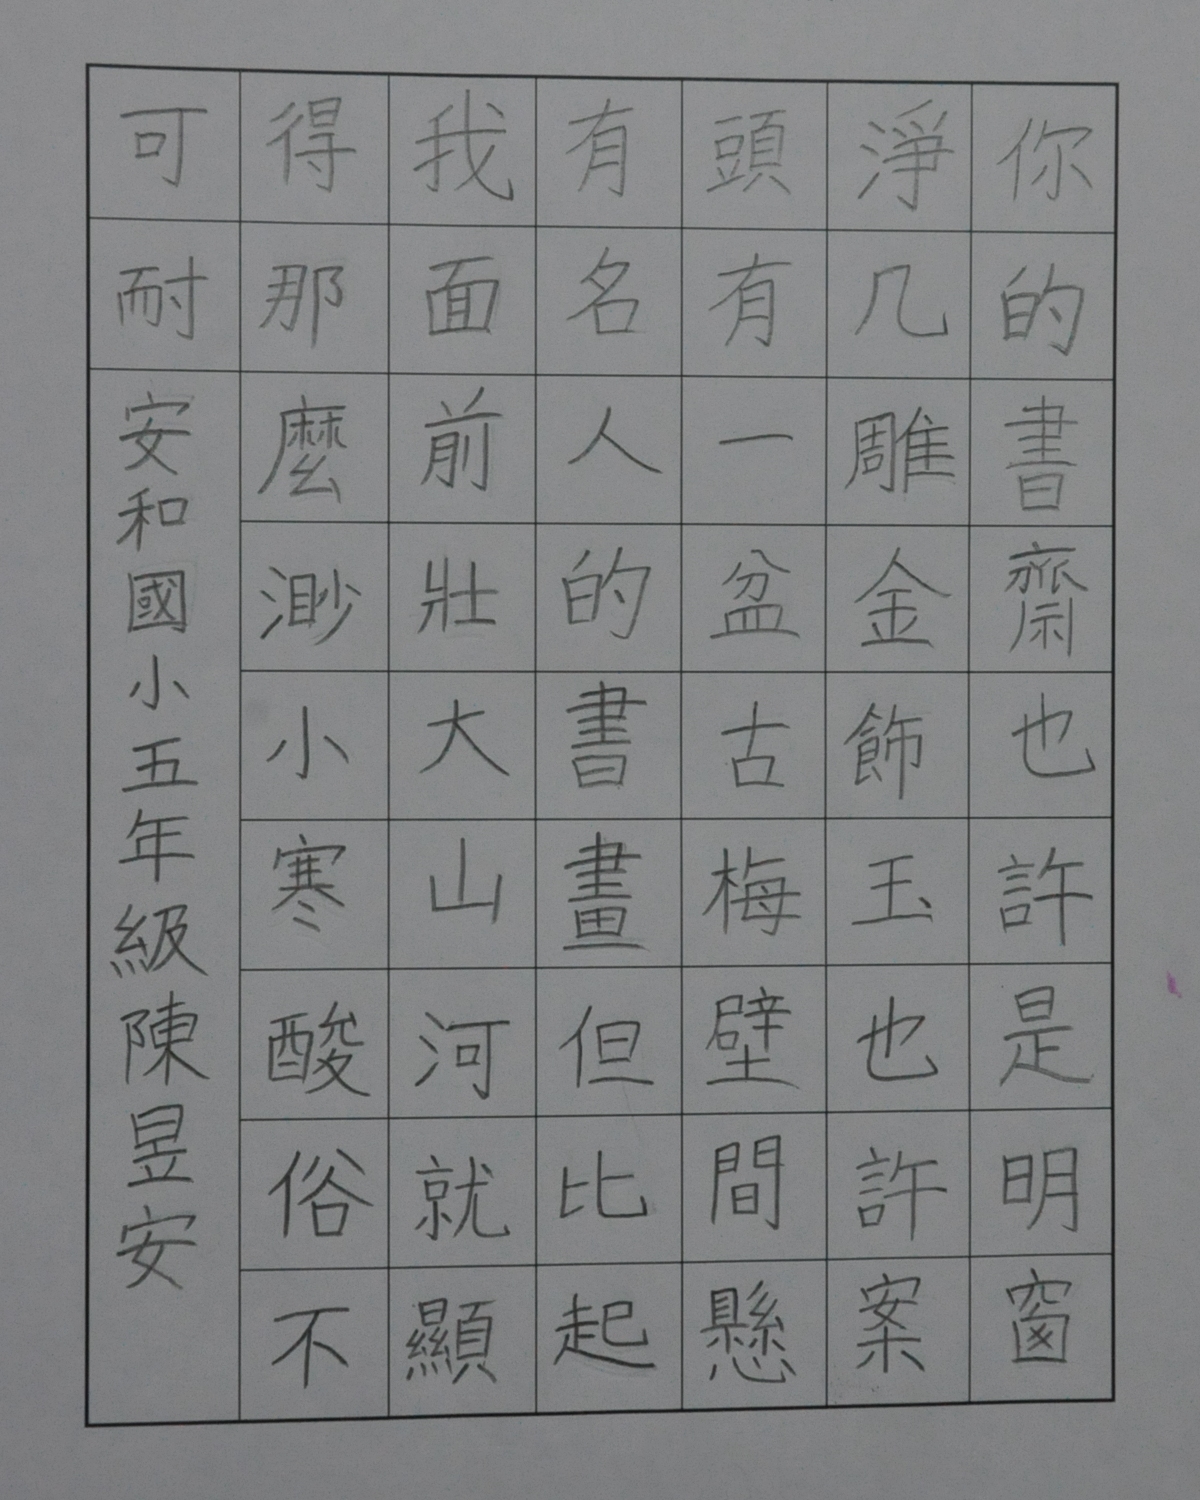 你的書齋也許是明窗
淨几雕金飾玉也許案
頭有一盆古梅壁間懸
有名人的書畫但比起
我面前壯大山河就顯
得那麼渺小寒酸俗不
可耐
安和國小五年級陳昱安